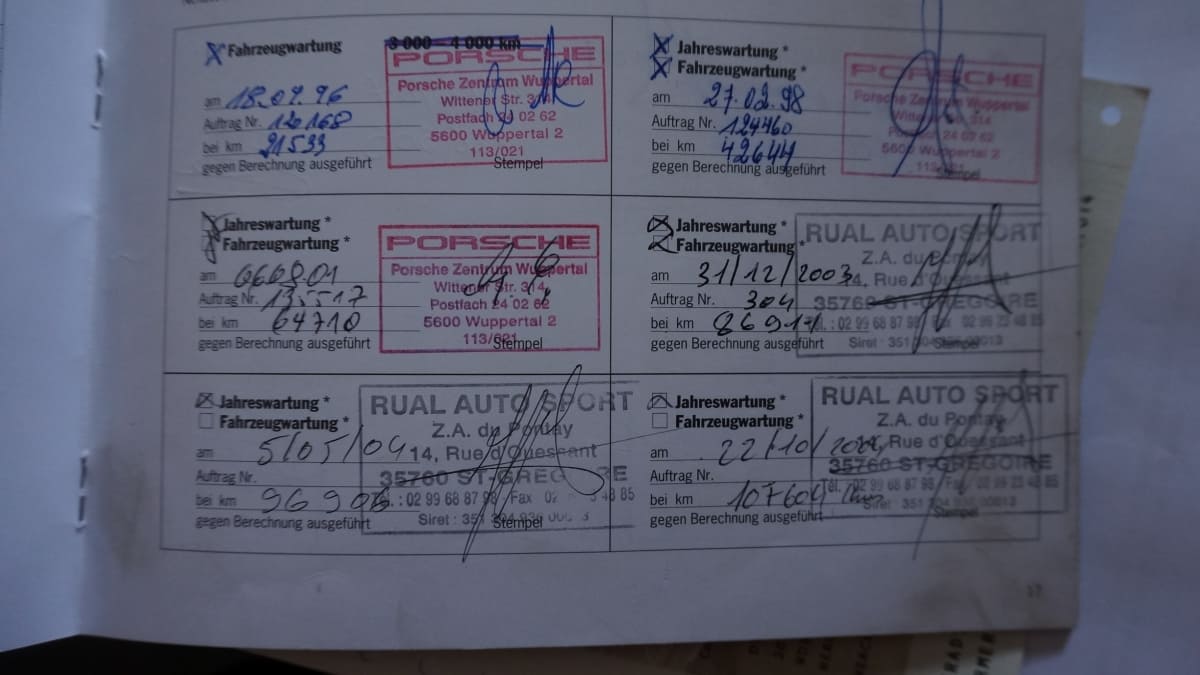 Fahrzeugwartung
3 000 – 4 000 km
am 18.07.96
Auftrag Nr. 120168
bei km 21533
gegen Berechnung ausgeführt
PORSCHE
Porsche Zentrum Wuppertal
Wittener Str. 314
Postfach 24 02 62
5600 Wuppertal 2
113/021
Stempel
Jahreswartung *
Fahrzeugwartung *
am 27.02.98
Auftrag Nr. 124460
bei km 42644
gegen Berechnung ausgeführt
PORSCHE
Porsche Zentrum Wuppertal
Wittener Str. 314
Postfach 24 02 62
5600 Wuppertal 2
Stempel
Jahreswartung *
Fahrzeugwartung *
am
Auftrag Nr.
bei km 64710
gegen Berechnung ausgeführt
PORSCHE
Porsche Zentrum Wuppertal
Wittener Str. 314
Postfach 24 02 62
5600 Wuppertal 2
113/021
Stempel
Jahreswartung *
Fahrzeugwartung *
am 31/12/2003
Auftrag Nr. 304
bei km 86917
gegen Berechnung ausgeführt
RUAL AUTO SPORT
Z.A. du
14, Rue d'Ouessant
35760 ST-GREGOIRE
Tél. : 02 99 68 87 98 Fax 02 99 23 48 85
Siret : 351
Stempel
Jahreswartung *
Fahrzeugwartung *
am 5/05/04
Auftrag Nr.
bei km 96906
gegen Berechnung ausgeführt
RUAL AUTO SPORT
Z.A. du
14, Rue d'Ouessant
35760 ST-GREGOIRE
: 02 99 68 87 98 Fax 02 48 85
Siret : 351
Stempel
Jahreswartung *
Fahrzeugwartung *
am 22/10/2004
Auftrag Nr.
bei km 107604
gegen Berechnung ausgeführt
RUAL AUTO SPORT
Z.A. du
14, Rue d'Ouessant
35760 ST-GREGOIRE
Tél. : 02 99 68 87 98 Fax 02 99 23 48 85
Siret : 351
Stempel
17
RAD